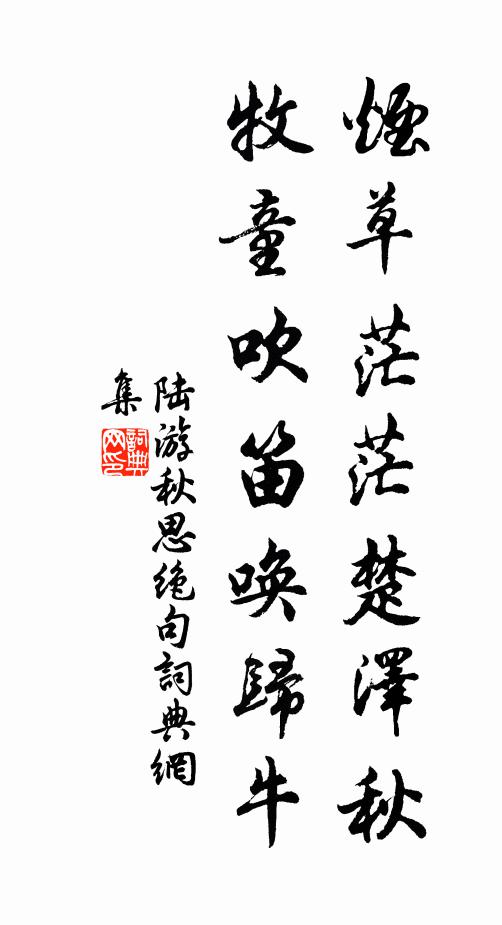 煙草茫茫楚澤秋
牧童吹笛喚歸牛
陆游秋思絶句詞典網
集
詞典网印